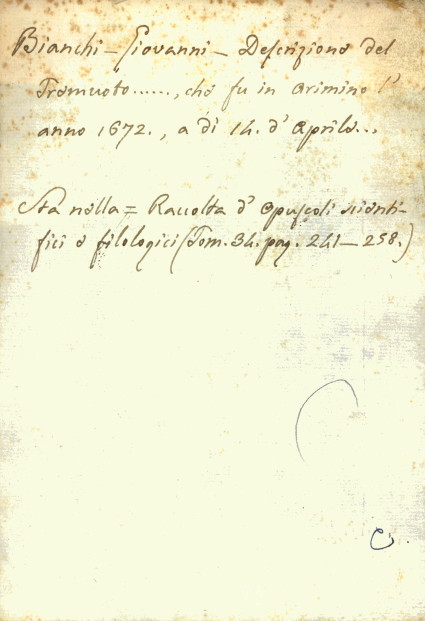 Bianchi - Giovanni - Descrizione del
Tremuoto......, che fu in Arimino l'
anno 1672., a dì 14. d' Aprile...
Sta nella = Raccolta d' Opuscoli scienti-
fici e filologici (Tom. 34. pag. 241-258.)